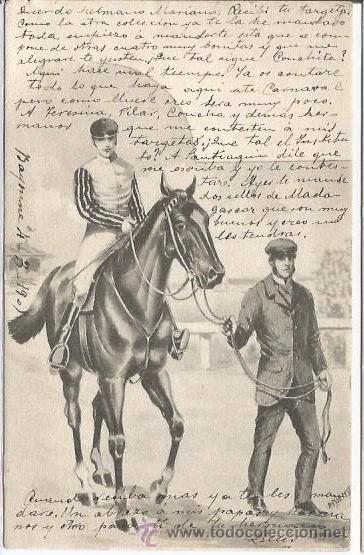 Querido hermano Mariano. Recibí tu targeta.
Como la otra coleccion ya te la he mandado
toda empiezo a mandarte esta que se com
pone de otras cuatro muy bonitas y que me
alegraré te gusten. Que tal sigue Conchita?
Aquí hace mal tiempo. Ya os contaré
todo lo que haya aquí este Carnaval
pero como llueve creo será muy poco.
A Jeronima, Pilar, Concha y demas her-
manos que me contesten a mis
targetas. Que tal el Institu
to? A Santiaguin dile que
me escriba y yo le contes-
taré. Ayer le mandé
dos sellos de Mada
gascar que son muy
buenos y creo no
les tendrás.
Bayonne 1901
Cuando reciba mas ya te les man
daré. Un abrazo a mis papas y herma
nos y otro para ti de tu hermano
todocoleccion
www.todocoleccion.net